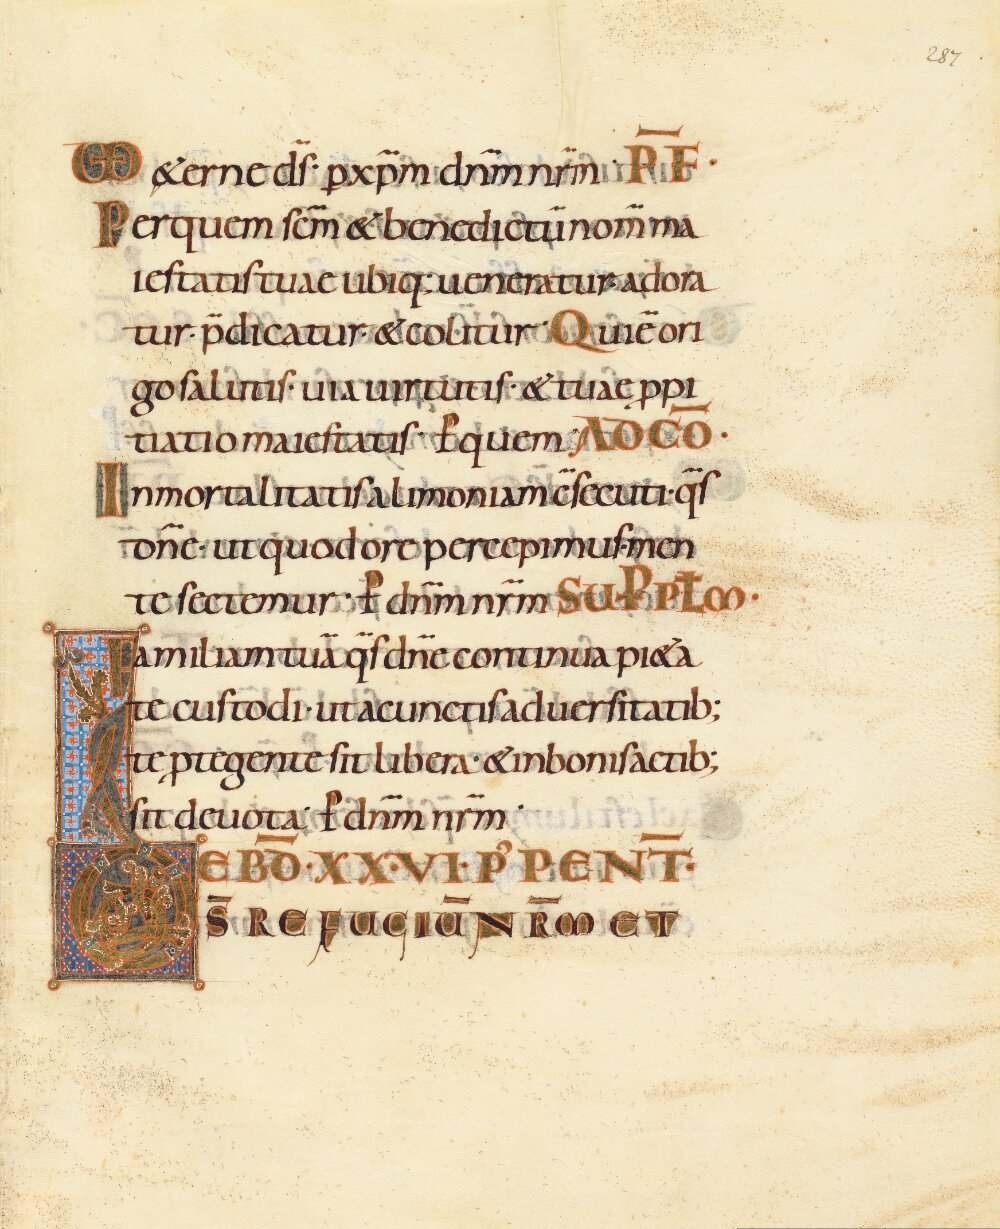 287
&erne d̅s̅· p xp̅m dn̅m nr̅m· P̅F̅·
Per quem sc̅m & benedictū nom̅ ma
iestatis tuae ubiq; ueneratur· adora
tur· p̅dicatur· & colitur· Qui n̅e̅ ori
go salutis· uia uirtutis· & tuae ppi
tiatio maiestatis· P̲ quem· AD C̅O̅·
Inmortalitatis alimoniam c̅secuti· q̅s
don̅e· ut quod ore percepimus· men
te sectemur· P̲ dn̅m nr̅m SUP PPL̅M·
Familiam tuā q̅s dn̅e continua pi&a
te custodi· ut a cunctis aduersitatib;
te ptegente sit libera· & in bonis actib;
sit deuota· P̲ dn̅m nr̅m·
EBD̅·XX·VI·P' PENT̅·
D̅S REFUGIŪ NR̅M ET